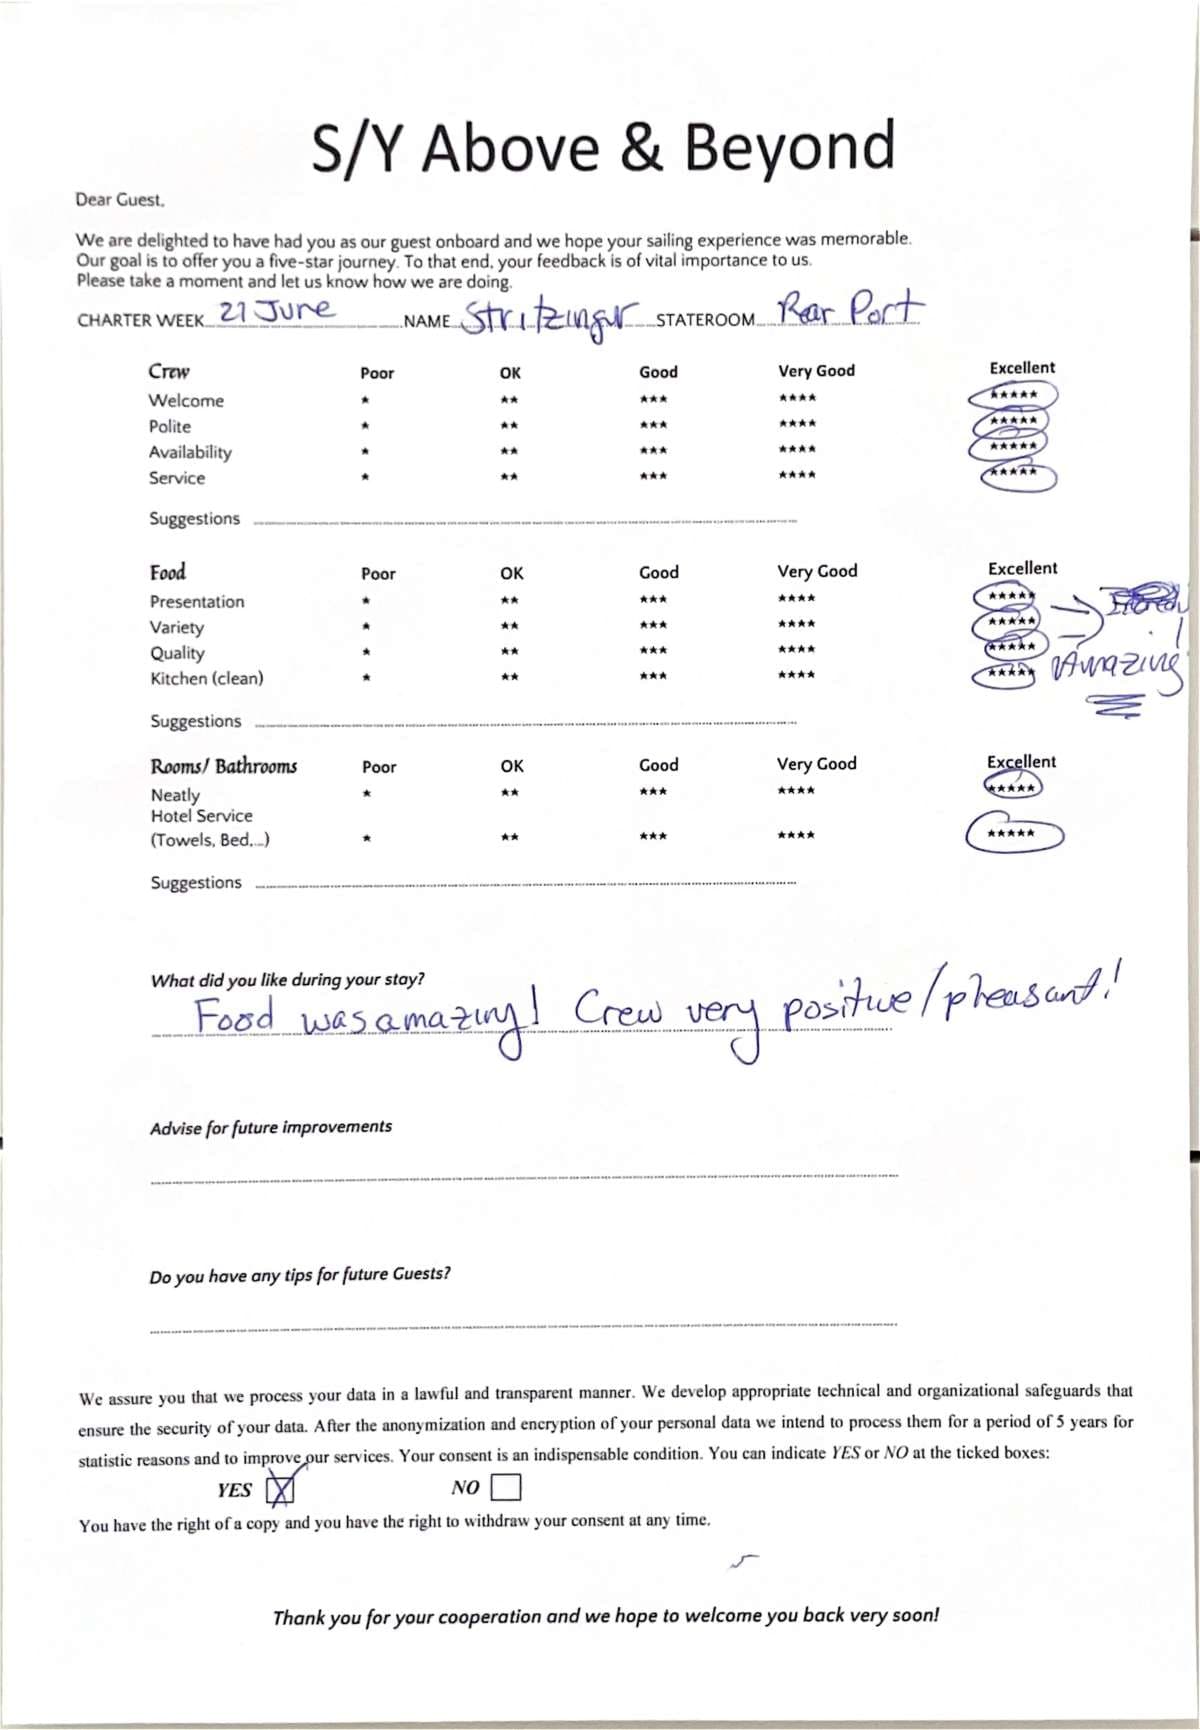 S/Y Above & Beyond
Dear Guest,
We are delighted to have had you as our guest onboard and we hope your sailing experience was memorable.
Our goal is to offer you a five-star journey. To that end, your feedback is of vital importance to us.
Please take a moment and let us know how we are doing.
CHARTER WEEK 21 June NAME Stritzinger STATEROOM Rear Port
Crew Poor OK Good Very Good Excellent
Welcome * ** *** **** *****
Polite * ** *** **** *****
Availability * ** *** **** *****
Service * ** *** **** *****
Suggestions
Food Poor OK Good Very Good Excellent
Presentation * ** *** **** *****
Variety * ** *** **** *****
Quality * ** *** **** *****
Kitchen (clean) * ** *** **** ***** Amazing!
Suggestions
Rooms/ Bathrooms Poor OK Good Very Good Excellent
Neatly * ** *** **** *****
Hotel Service
(Towels, Bed,...) * ** *** **** *****
Suggestions
What did you like during your stay?
Food was amazing! Crew very positive/pheasant!
Advise for future improvements
Do you have any tips for future Guests?
We assure you that we process your data in a lawful and transparent manner. We develop appropriate technical and organizational safeguards that
ensure the security of your data. After the anonymization and encryption of your personal data we intend to process them for a period of 5 years for
statistic reasons and to improve our services. Your consent is an indispensable condition. You can indicate YES or NO at the ticked boxes:
YES X NO
You have the right of a copy and you have the right to withdraw your consent at any time.
Thank you for your cooperation and we hope to welcome you back very soon!